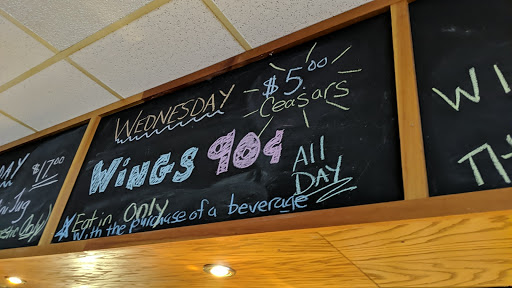 DAY
$17.00
Jug
Only)
WEDNESDAY - $5.00
Ceasars
WiNGS 90¢ All
DAY
Eat in Only
with the purchase of a beverage
WI